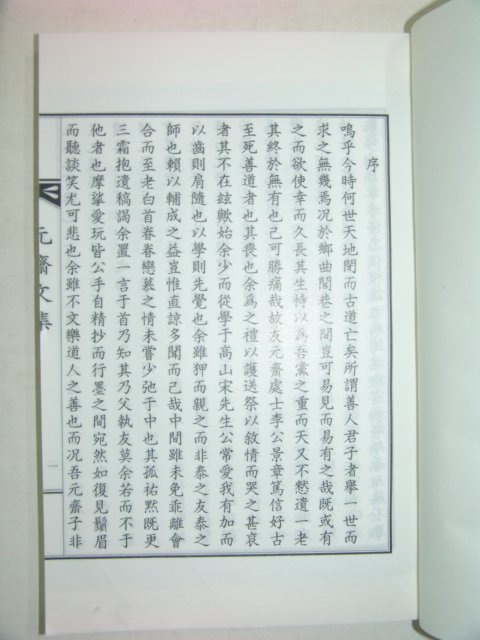 序
嗚乎今時何世天地閉而古道亡矣所謂善人君子者舉一世而
求之無幾焉况於鄉曲閭巷之間豈可易見而易有之哉既或有
之而欲使幸而久長其生恃以爲吾黨之重而天又不憖遺一老
其終於無有也已可勝痛哉故友元齋處士李公景章篤信好古
至死善道者也其喪也余爲之禮以護送祭以敘情而哭之甚哀
者其不在玆歟始余少而從學于高山宋先生公常愛我有加而
以齒則肩隨也以學則先覺也余雖狎而親之而非泰之友泰之
師也賴以輔成之益豈惟直諒多聞而已哉中間雖未免乖離會
合而至老白首眷眷戀慕之情未嘗少弛于中也其孤祐㸃既更
三霜抱遺稿謁余置一言于首乃知其乃父執友莫余若而不于
他者也摩挲愛玩皆公手自精抄而行墨之間宛然如復見鬚眉
而聽談笑尤可悲也余雖不文樂道人之善也而况吾元齋子非
元齋文集
一